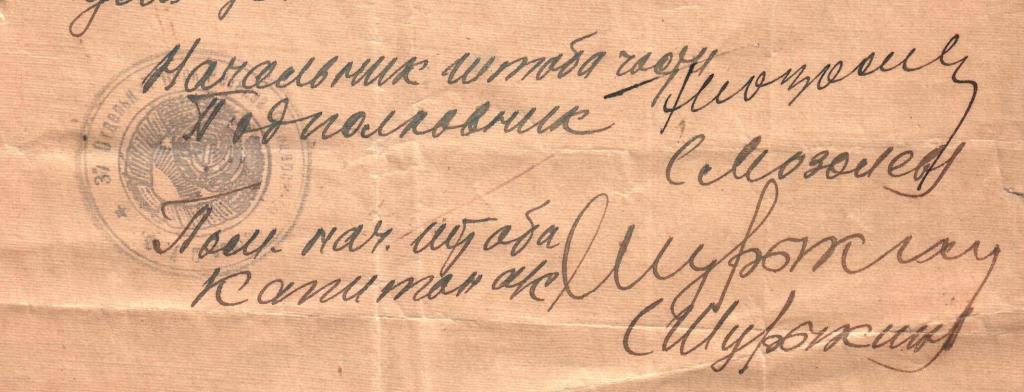 Начальник штоба части
Подполковник
(Мозолев)
Пом. нач. штоба
Капитан ак
(Шурыжкин)
37 Отдельн